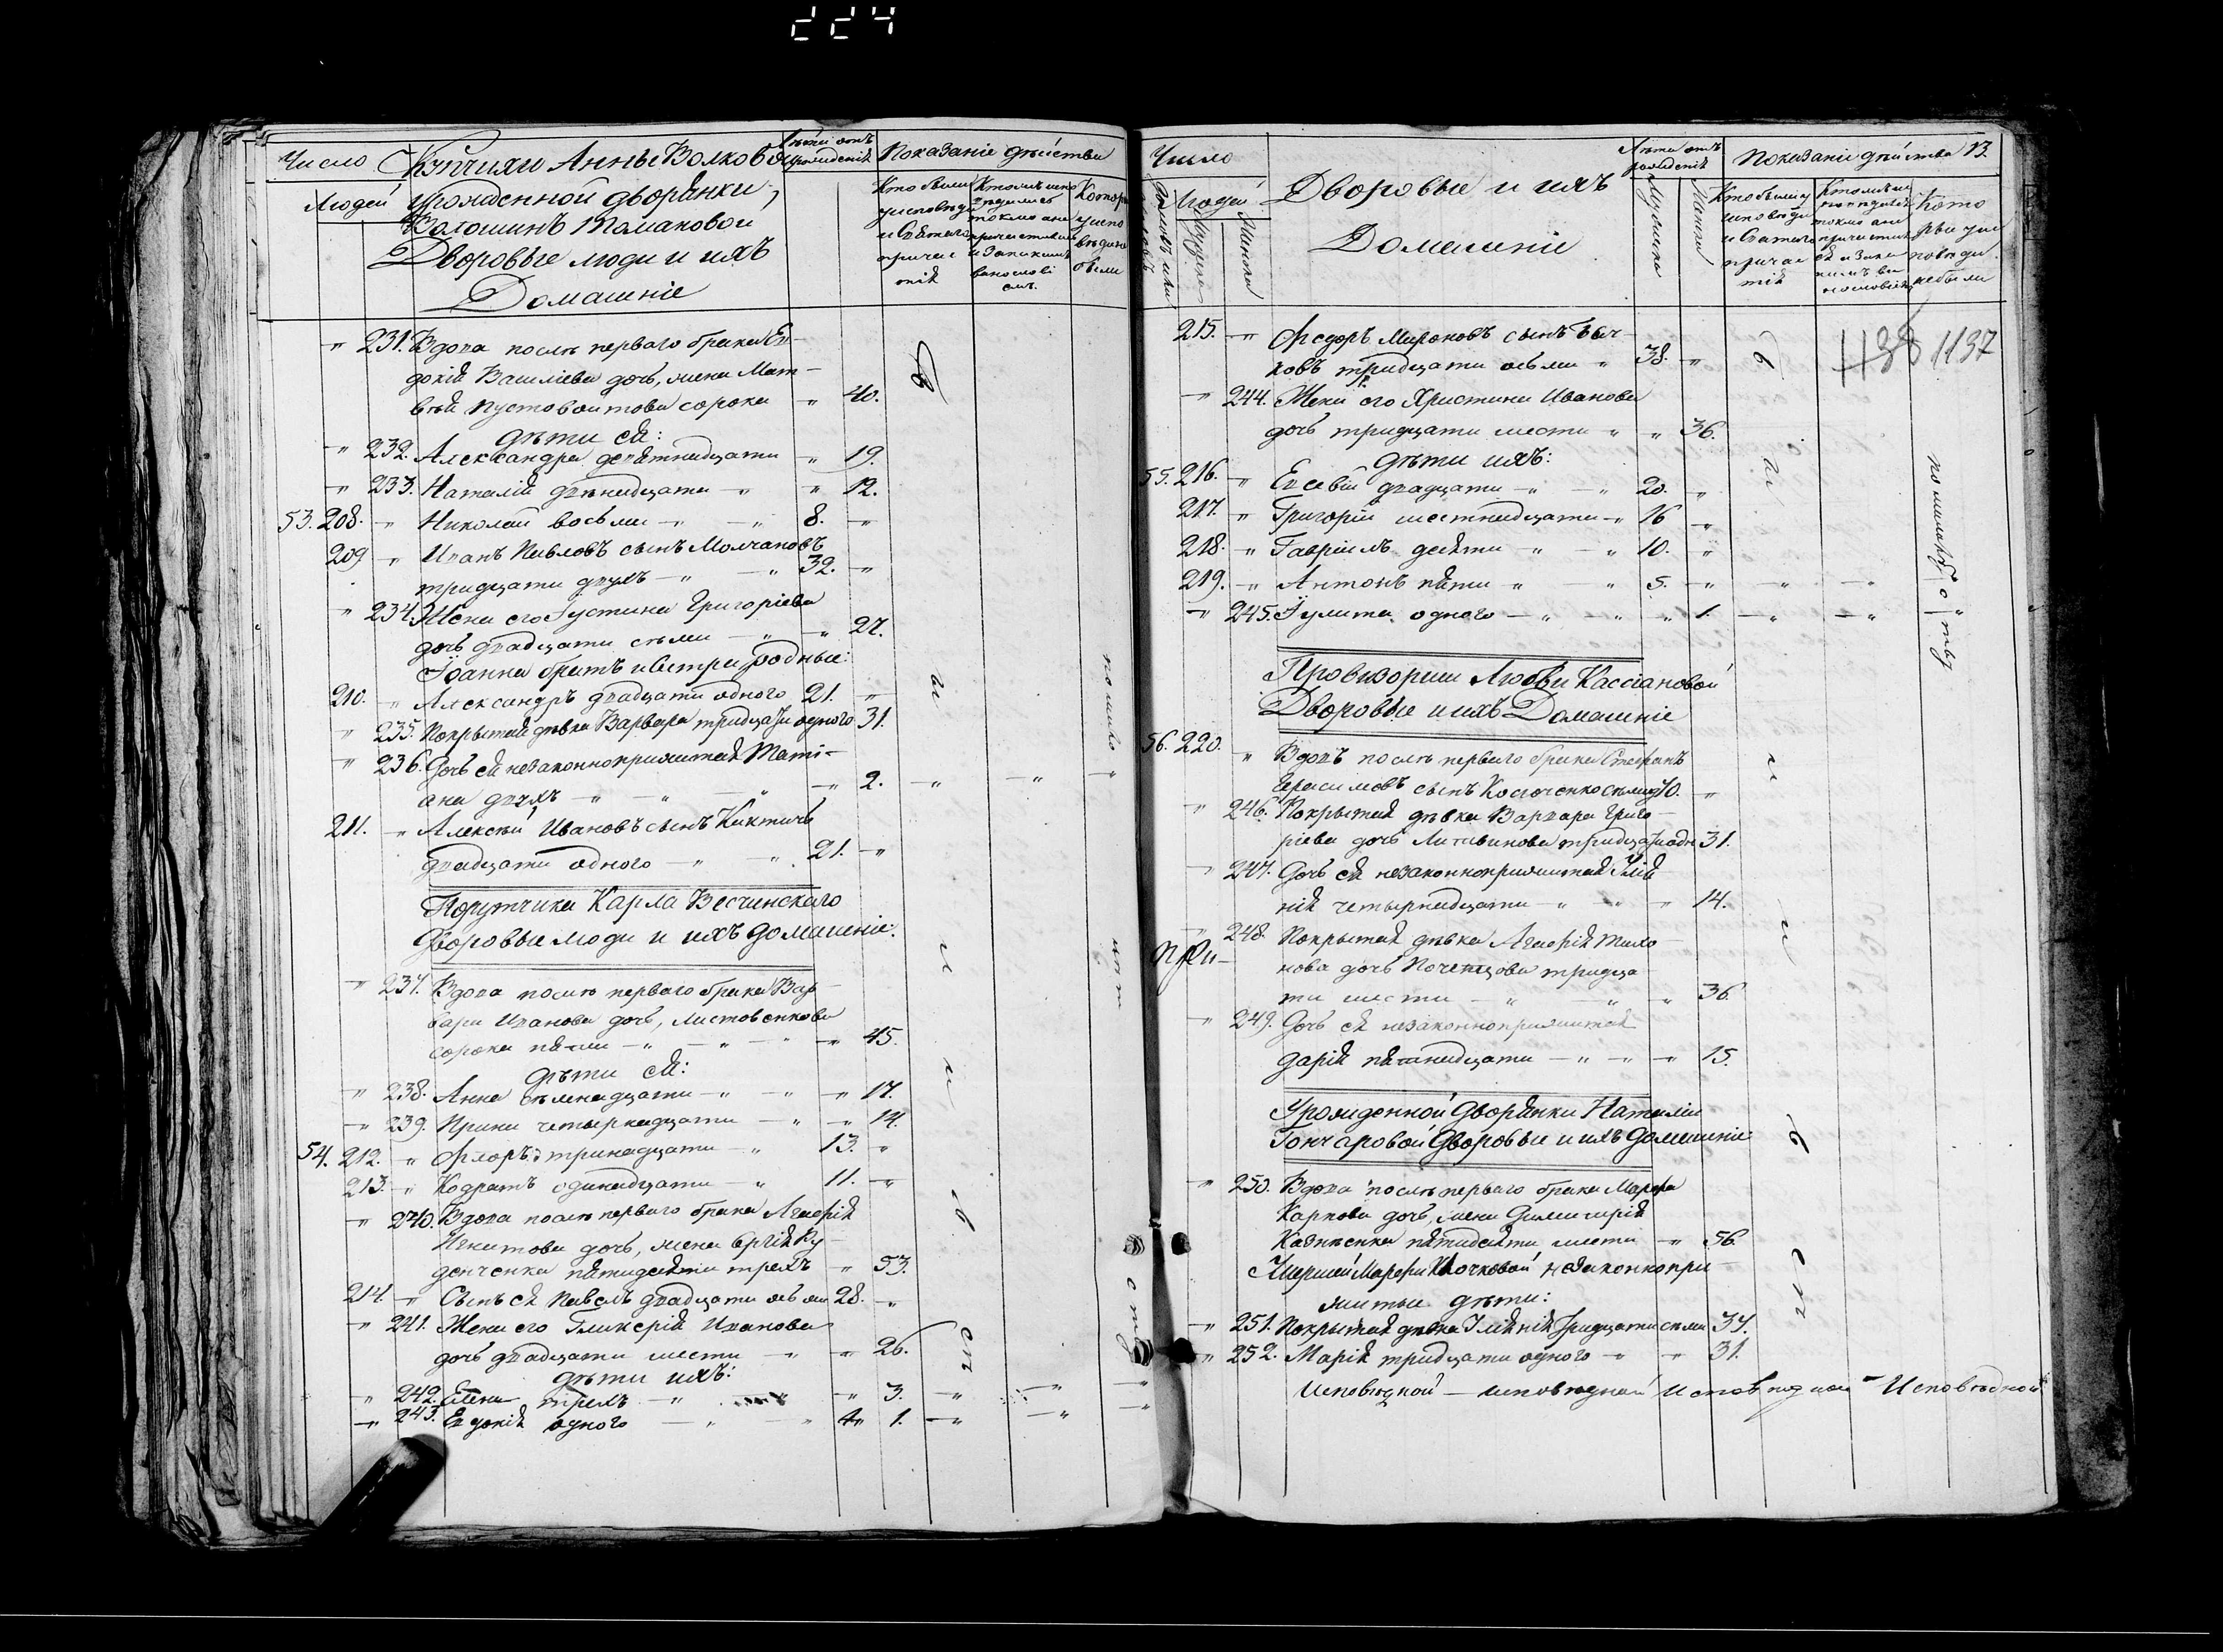 224
Число Купчихи Анны Волковой
Людей урожденной дворянки,
Волошинъ Томановой
Дворовые люди и ихъ
Домашніе
Лѣта отъ рожденія
Показаніе дѣйства
Кто были у исповѣди и Святаго причастія
" 231. Вдова послѣ перваго брака Ев-
докія Василіева дочь, жена Мат-
вѣя Пустовойтова сорока " 40.
дѣти ея:
" 232. Александра девятнадцати " 19.
" 233. Наталія двѣнадцати " " 12.
53. 208. " Николай восьми " " 8. "
209 " Иванъ Павловъ сынъ Молчановъ
тридцати двухъ " " 32. "
" 234. Жена его Іустина Григоріева
дочь двадцати семи " " 27.
Іоанна братъ и сестра родные:
210. " Александръ двадцати одного 21. "
" 235. Покрытая дѣвка Варвара тридцати одного 31.
" 236. Дочь ея незаконноприжитая Тати-
ана двухъ " " " " 2. " " "
211. " Алексѣй Ивановъ сынъ Киктичъ
двадцати одного " " 21. "
Порутчика Карла Весчинскаго
Дворовые люди и ихъ домашніе.
" 237. Вдова послѣ перваго брака Вар-
вара Иванова дочь, Листовенкова
сорока пяти " " " " 45.
дѣти ея:
" 238. Анна семнадцати " " " 17.
" 239. Ирина четырнадцати " " 14.
54. 212. " Флоръ тринадцати " 13. "
213. " Кодратъ одинадцати " 11. "
" 240. Вдова послѣ перваго брака Агафія
Игнатова дочь, жена Сергія Ру-
денченка пятидесяти трехъ " 53.
214. " Сынъ ея Павелъ двадцати осьми 28. "
" 241. Жена его Гликерія Иванова
дочь двадцати шести " " 26.
дѣти ихъ:
" 242. Елена трехъ " " 3. " " "
" 243. Евдокія одного " " " 1. " " "
Число
Людей
Дворовые и ихъ
Домашніе
Лѣта отъ рожденія
Мужеска
Женска
Показаніе дѣйства 13.
Кто были у исповѣди и Святаго причастія
1138 1137
215. " Ѳедоръ Мироновъ сынъ Быч-
ковъ тридцати осьми " 38. "
" 244. Жена его Христина Иванова
дочь тридцати шести " " 36.
дѣти ихъ:
55. 216. " Евсевій двадцати " " 20. "
217. " Григорій шестнадцати " 16 "
218. " Гавріилъ десяти " " 10. "
219. " Антонъ пяти " " 5. " " "
" 245. Іулита одного " " " 1. " "
Провизорши Любви Кассіановой
Дворовые и ихъ Домашніе
56. 220. " Вдовъ послѣ перваго брака Стефанъ
Герасимовъ сынъ Косюченко 70. "
" 246. Покрытая дѣвка Варвара Григо-
ріева дочь Литвинова тридцати одн 31.
" 247. Дочь ея незаконноприжитая Уліа-
нія четырнадцати " " " 14.
" 248. Покрытая дѣвка Агафія Тихо-
нова дочь Поченцова тридца-
ти шести " " " 36.
" 249. Дочь ея незаконноприжитая
Дарія пятнадцати " " " 15.
Урожденной дворянки Наталіи
Гончаровой дворовые и ихъ домашніе
" 250. Вдова послѣ перваго брака Марфа
Карпова дочь, жена Димитрія
пятидесяти шести " 56.
Умершей Марфы Клочковой незаконнопри-
житые дѣти:
" 251. Покрытая дѣвка Уліанія тридцати семи 37.
" 252. Марія тридцати одного " " 31.
Исповѣдной - исповѣдной Исповѣдной - Исповѣдной